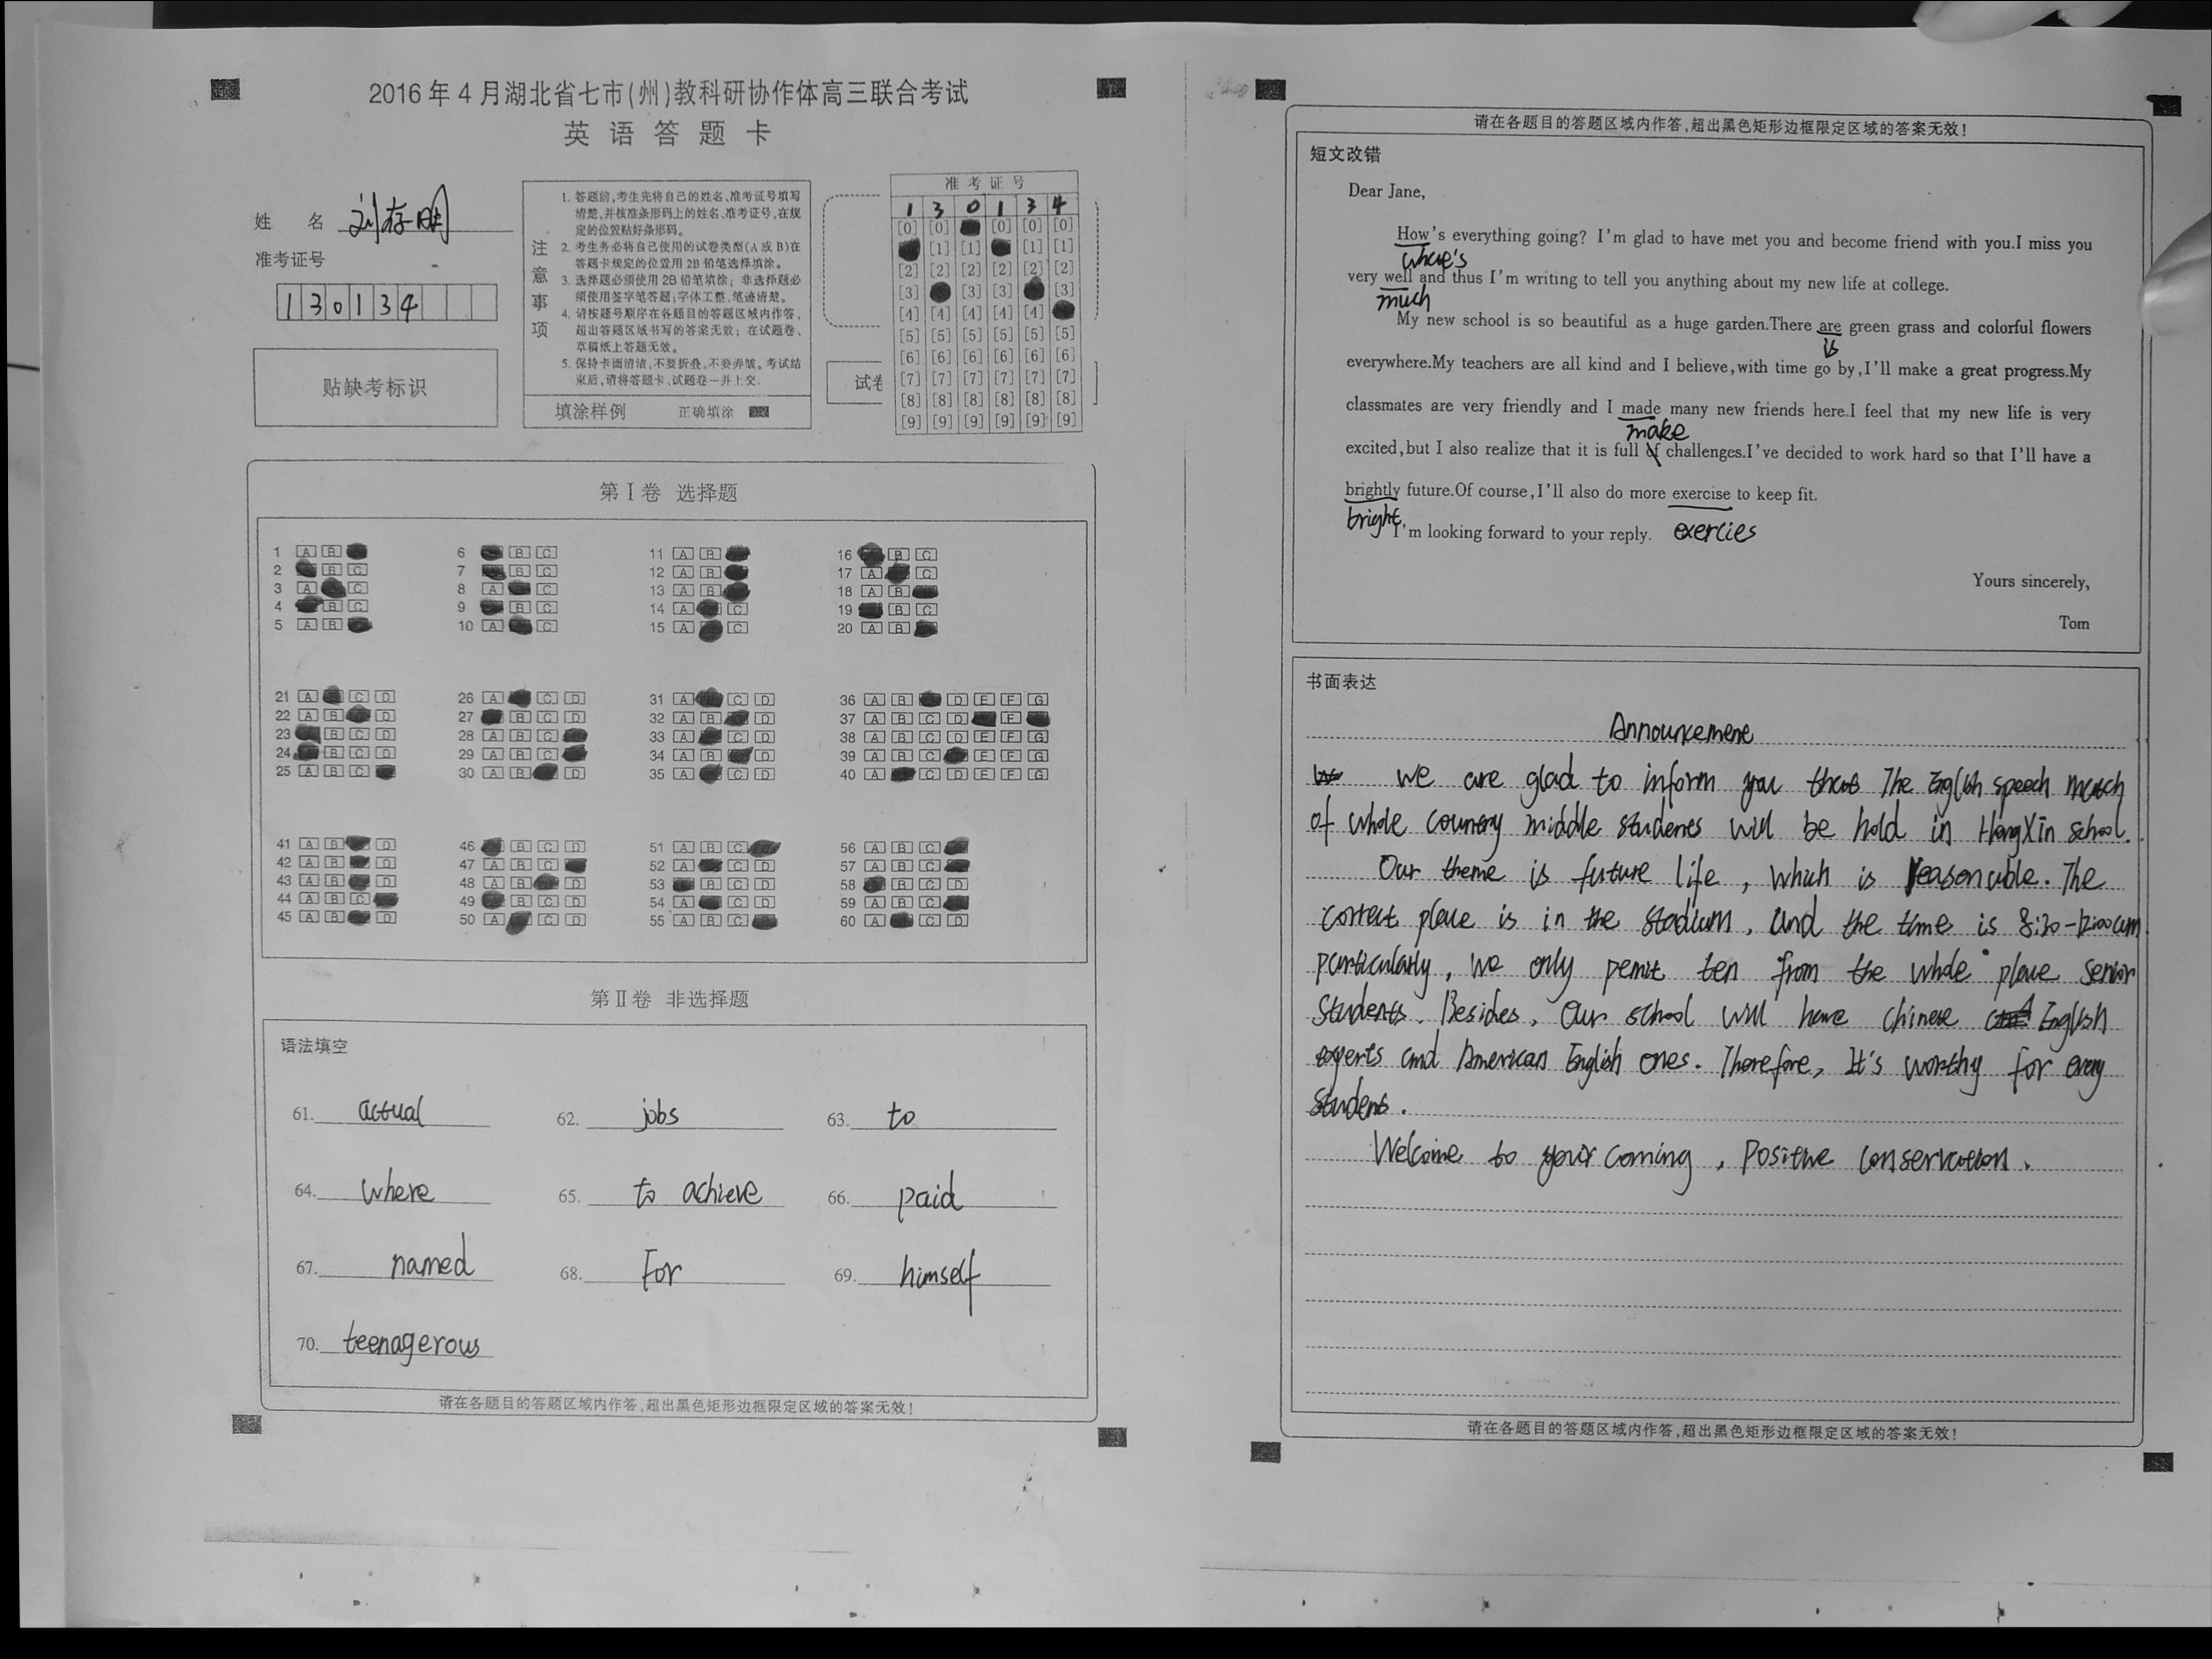 2016年4月湖北省七市(州)教科研协作体高三联合考试
英语答题卡
姓 名 刘存明
准考证号
130134
贴缺考标识
注意事项
1. 答题前,考生先将自己的姓名、准考证号填写
清楚,并核准条形码上的姓名、准考证号,在规
定的位置贴好条形码。
2. 考生务必将自己使用的试卷类型(A 或 B)在
答题卡规定的位置用 2B 铅笔选择填涂。
3. 选择题必须使用 2B 铅笔填涂; 非选择题必
须使用签字笔答题;字体工整,笔迹清楚。
4. 请按题号顺序在各题目的答题区域内作答,
超出答题区域书写的答案无效; 在试题卷、
草稿纸上答题无效。
5. 保持卡面清洁,不要折叠,不要弄皱。考试结
束后,请将答题卡、试题卷一并上交.
填涂样例 正确填涂
试卷
准考证号
1 3 0 1 3 4
[0] [0] [0] [0] [0]
[1] [1] [1] [1]
[2] [2] [2] [2] [2] [2]
[3] [3] [3] [3]
[4] [4] [4] [4] [4]
[5] [5] [5] [5] [5] [5]
[6] [6] [6] [6] [6] [6]
[7] [7] [7] [7] [7] [7]
[8] [8] [8] [8] [8] [8]
[9] [9] [9] [9] [9] [9]
第Ⅰ卷 选择题
1 A B 6 B C 11 A B 16 B C
2 B C 7 B C 12 A B 17 A C
3 A C 8 A C 13 A B 18 A B
4 B C 9 B C 14 A C 19 B C
5 A B 10 A C 15 A C 20 A B
21 A C D 26 A C D 31 A C D 36 A B D E F G
22 A B D 27 B C D 32 A B D 37 A B C D F
23 B C D 28 A B C 33 A C D 38 A B C D E F G
24 B C D 29 A B C 34 A B D 39 A B C E F G
25 A B C 30 A B D 35 A C D 40 A C D E F G
41 A B D 46 B C D 51 A B C 56 A B C
42 A B D 47 A B C 52 A C D 57 A B C
43 A B D 48 A B D 53 B C D 58 B C D
44 A B C 49 B C D 54 A C D 59 A B C
45 A B D 50 A C D 55 A B C 60 A C D
第Ⅱ卷 非选择题
语法填空
61. actual 62. jobs 63. to
64. where 65. to achieve 66. paid
67. named 68. For 69. himself
70. teenagerous
请在各题目的答题区域内作答,超出黑色矩形边框限定区域的答案无效!
请在各题目的答题区域内作答,超出黑色矩形边框限定区域的答案无效!
短文改错
Dear Jane,
How's everything going? I'm glad to have met you and become friend with you.I miss you
whare's
very well and thus I'm writing to tell you anything about my new life at college.
much
My new school is so beautiful as a huge garden.There are green grass and colorful flowers
is
everywhere.My teachers are all kind and I believe,with time go by,I'll make a great progress.My
classmates are very friendly and I made many new friends here.I feel that my new life is very
make
excited,but I also realize that it is full of challenges.I've decided to work hard so that I'll have a
brightly future.Of course,I'll also do more exercise to keep fit.
bright
I'm looking forward to your reply. exercies
Yours sincerely,
Tom
书面表达
Announcement
We are glad to inform you that The English speech match
of whole country middle students will be hold in HongXin school.
Our theme is future life, which is reasonable. The
correct place is in the stadium, and the time is 8:30-12:00am
particularly, we only permit ten from the whole place senior
students. Besides, Our school will have chinese English
experts and American English ones. Therefore, It's worthy for every
student.
Welcome to your coming, Positive conservation.
请在各题目的答题区域内作答,超出黑色矩形边框限定区域的答案无效!